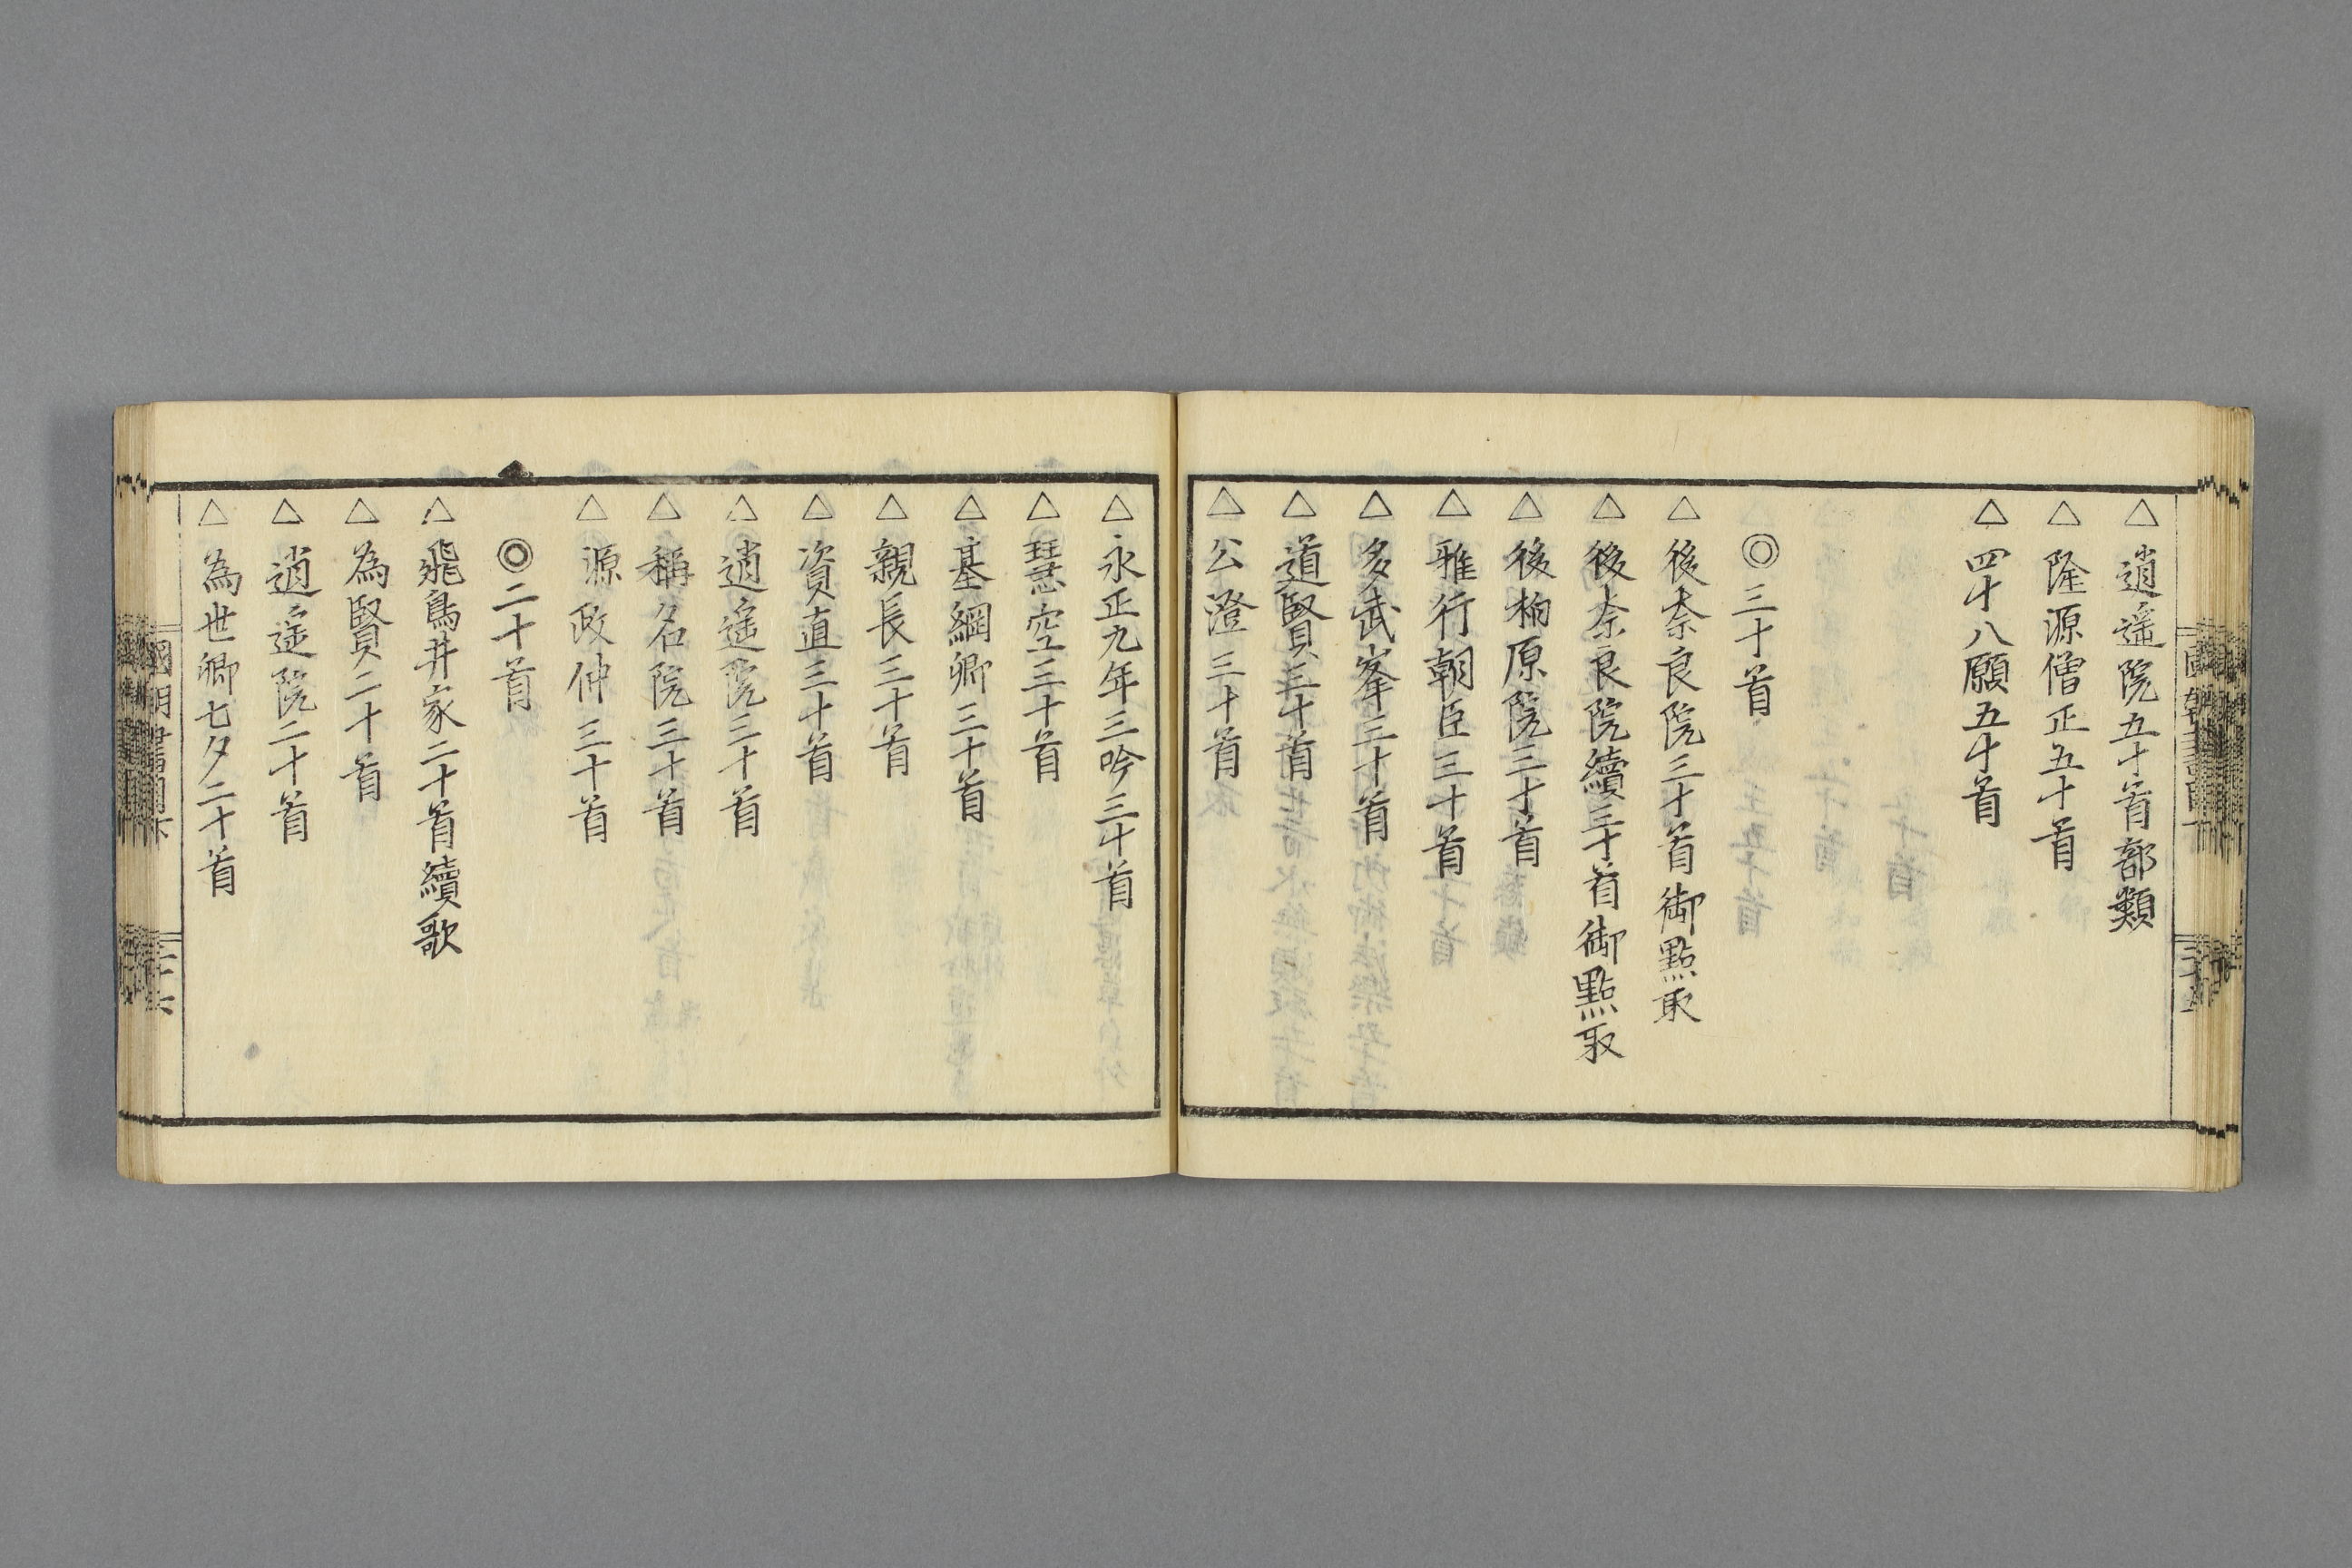 △逍遥院五十首部類
△隆源僧正五十首
△四十八願五十首
◎三十首
△後奈良院三十首御點取
△後奈良院續三十首御點取
△後柏原院三十首
△雅行朝臣三十首
△多武峯三十首
△道賢三十首
△公澄三十首
△永正九年三吟三十首
△慧空三十首
△基綱卿三十首
△親長三十首
△資直三十首
△逍遥院三十首
△稱名院三十首
△源政仲三十首
◎二十首
△飛鳥井家二十首續歌
△為賢二十首
△逍遥院二十首
△為世卿七夕二十首